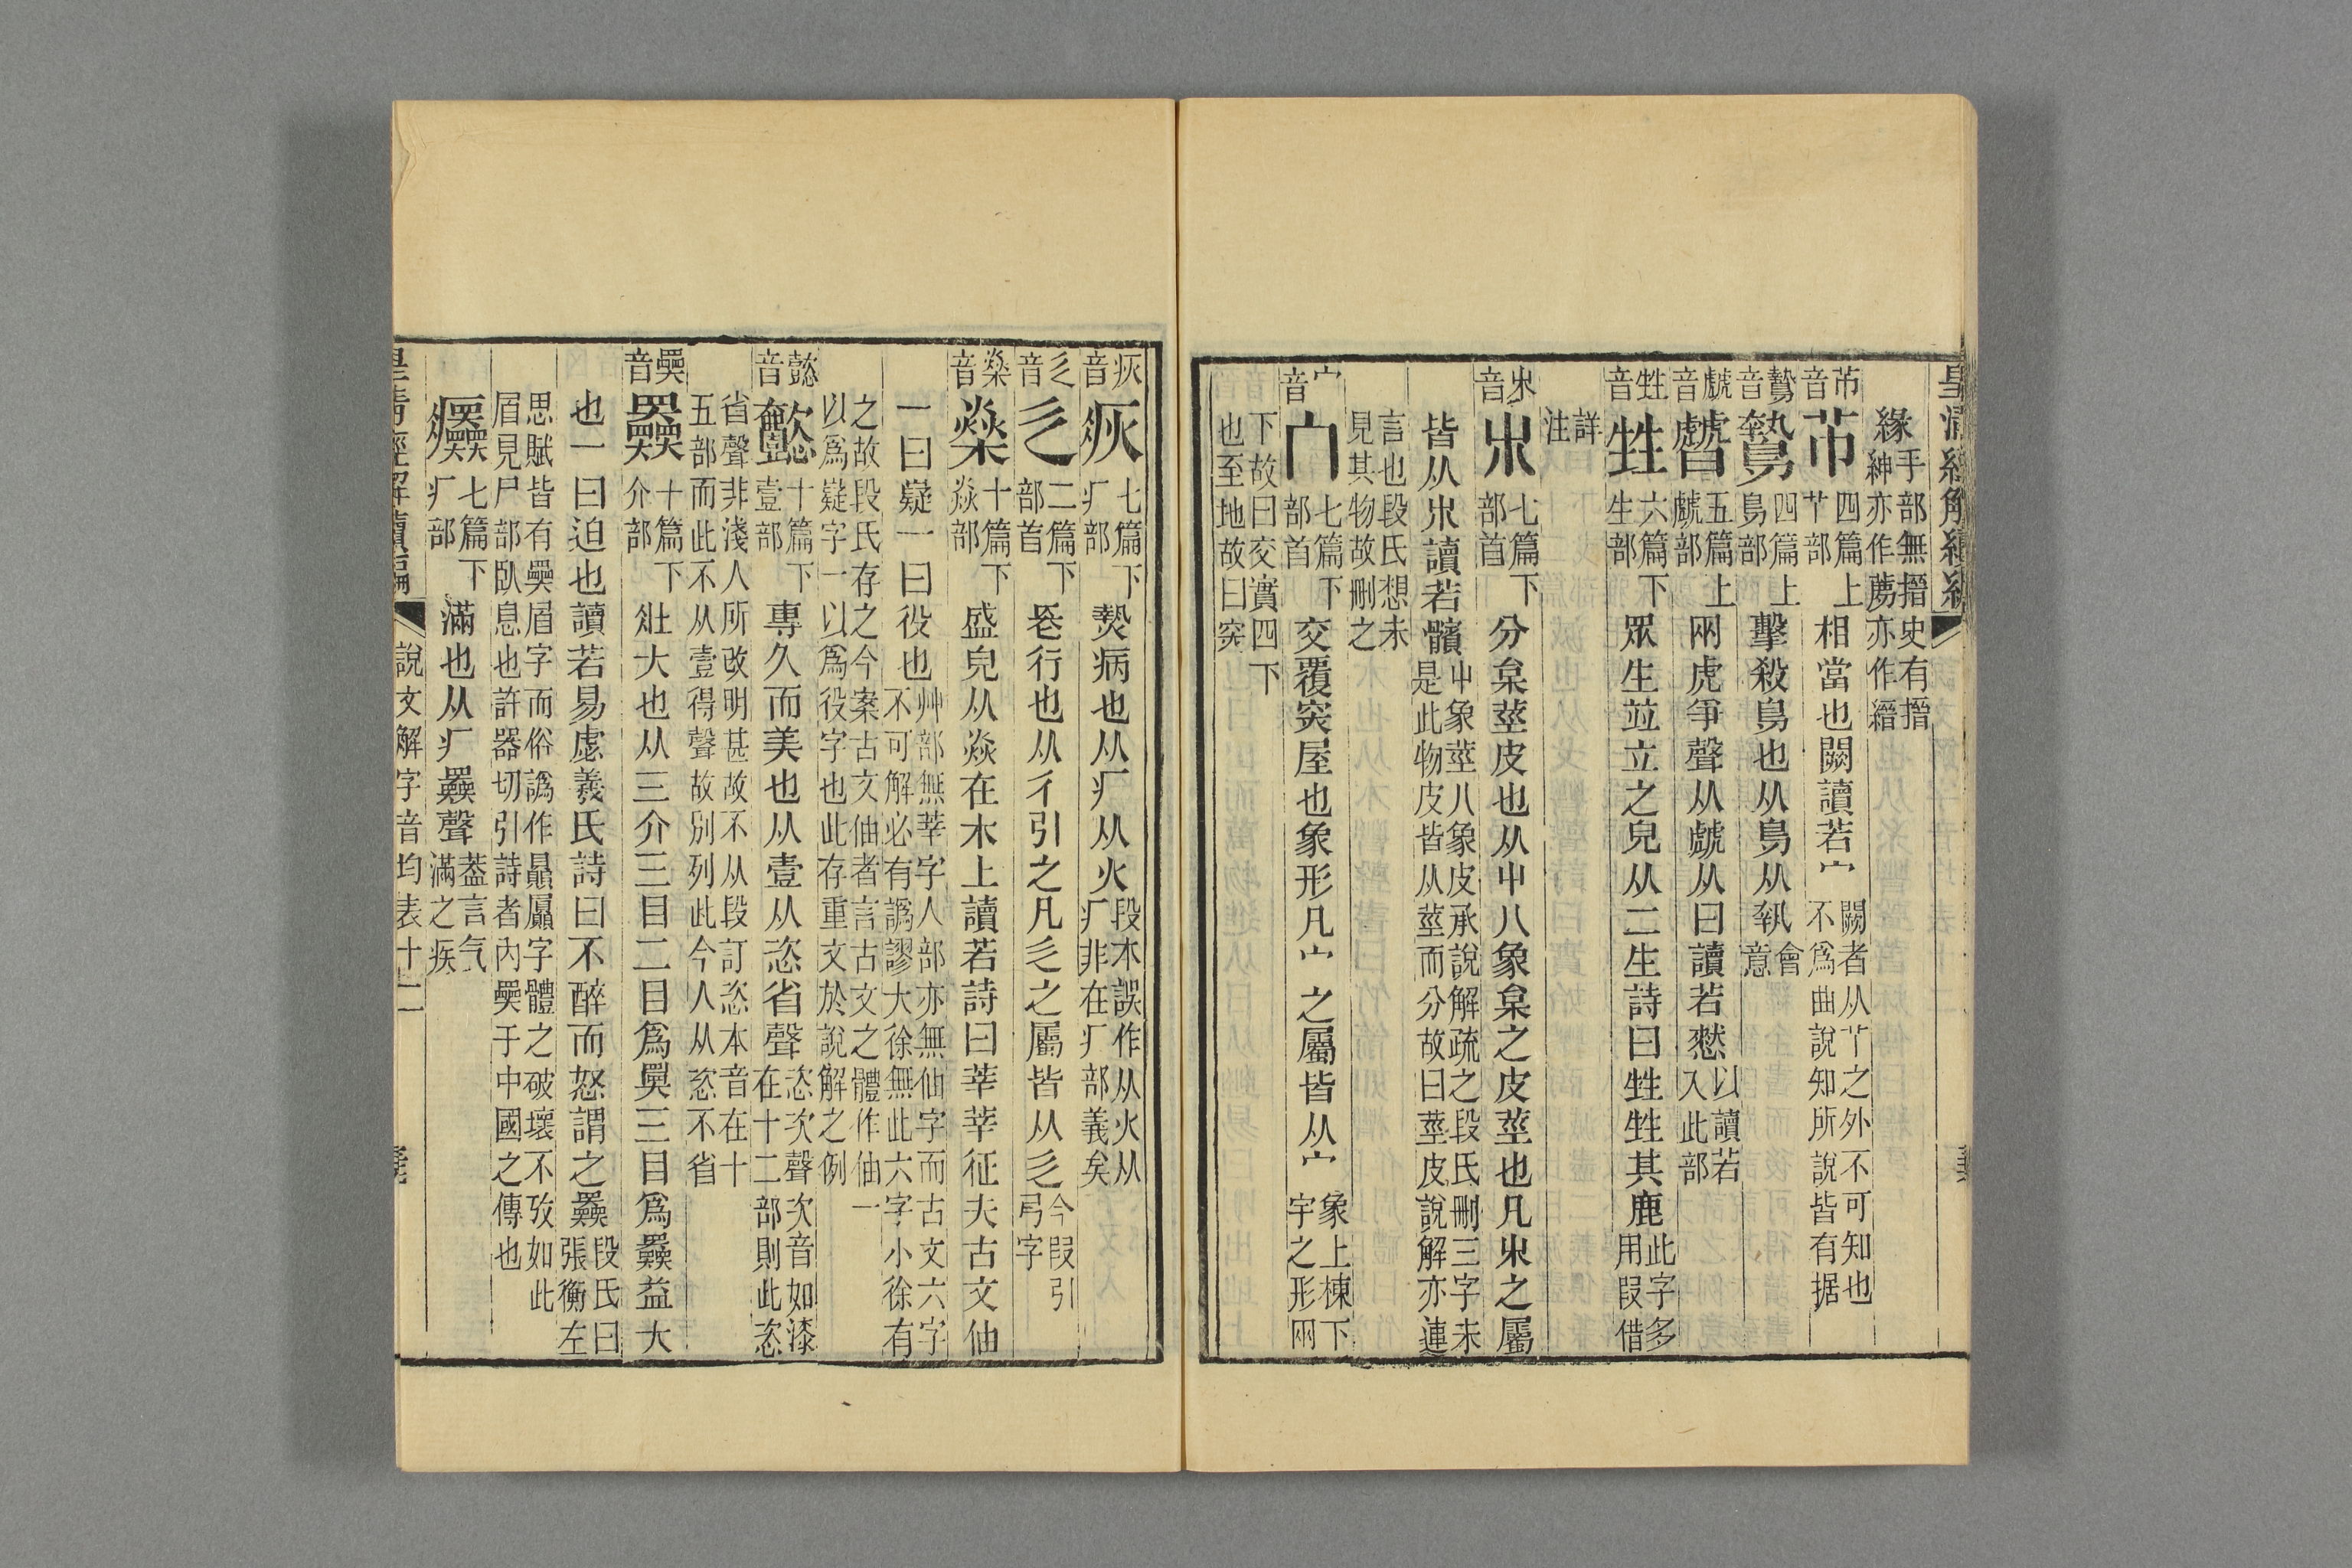 皇清經解續編
緣手部無搢史有搢紳亦作薦亦作縉
芇音 芇四篇上𦫳部 相當也闕讀若宀闕者从𦫳之外不可知也不爲曲說知所說皆有据
鷙音 鷙四篇上鳥部 擊殺鳥也从鳥从執會意
虤音 五篇上虤部 兩虎爭聲从虤从曰讀若憖以讀若入此部
甡音 甡六篇下生部 眾生竝立之皃从二生詩曰甡甡其鹿此字多用叚借
詳注
𣎳音 𣎳七篇下部首 分枲莖皮也从屮八象枲之皮莖也凡𣎳之屬
皆从𣎳讀若髕屮象莖八象皮承說解疏之段氏刪三字未是此物皮皆从莖而分故曰莖皮說解亦連
言也段氏想未見其物故刪之
宀音 宀七篇下部首 交覆突屋也象形凡宀之屬皆从宀象上棟下宇之形兩
下故曰交實四下也至地故曰突
疢音 疢七篇下疒部 熱病也从疒从火段本誤作从火从疒非在疒部義矣
廴音 廴二篇下部首 長行也从彳引之凡廴之屬皆从廴今叚引弓字
燊音 燊十篇下焱部 盛皃从焱在木上讀若詩曰莘莘征夫古文伷
一曰嶷一曰役也艸部無莘字人部亦無伷字而古文六字不可解必有譌謬大徐無此六字小徐有
之故段氏存之今案古文伷者言古文之體作伷一以爲嶷字一以爲役字也此存重文於說解之例
懿音 懿十篇下壹部 專久而美也从壹从恣省聲恣次聲次音如漆在十二部則此恣
省聲非淺人所改明甚故不从段訂恣本音在十五部而此不从壹得聲故別列此今人从恣不省
奰音 十篇下夰部 壯大也从三大三目二目爲𥆛三目爲奰益大
也一曰迫也讀若易虙羲氏詩曰不醉而怒謂之奰段氏曰張衡左
思賦皆有奰眉字而俗譌作贔屭字體之破壞不攷如此眉見尸部臥息也許器切引詩者內奰于中國之傳也
七篇下疒部 滿也从疒奰聲葢言气滿之疾
皇清經解續編 說文解字音均表十二